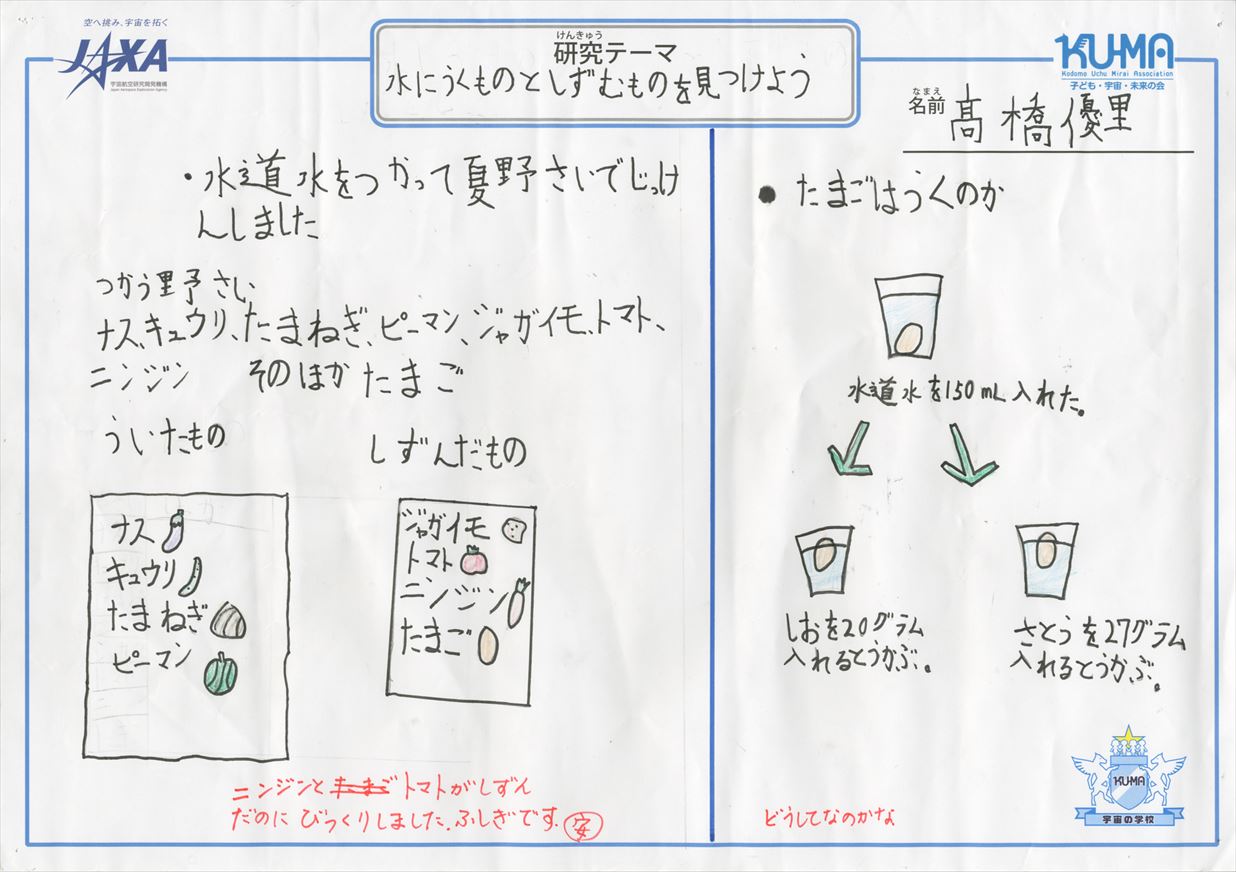 空へ挑み、宇宙を拓く
JAXA
宇宙航空研究開発機構
Japan Aerospace Exploration Agency
けんきゅう
研究テーマ
水にうくものとしずむものを見つけよう
KU-MA
Kodomo Uchu Mirai Association
子ども・宇宙・未来の会
なまえ
名前 髙橋優里
・水道水をつかって夏野さいでじっけ
んしました
つかう野さい
ナス、キュウリ、たまねぎ、ピーマン、ジャガイモ、トマト、
ニンジン そのほか たまご
ういたもの
ナス
キュウリ
たまねぎ
ピーマン
しずんだもの
ジャガイモ
トマト
ニンジン
たまご
ニンジンとたまごトマトがしずん
だのにびっくりしました。ふしぎです。安
● たまごはうくのか
水道水を150mL入れた。
しおを20グラム
入れるとうかぶ。
さとうを27グラム
入れるとうかぶ。
どうしてなのかな
KU-MA
宇宙の学校